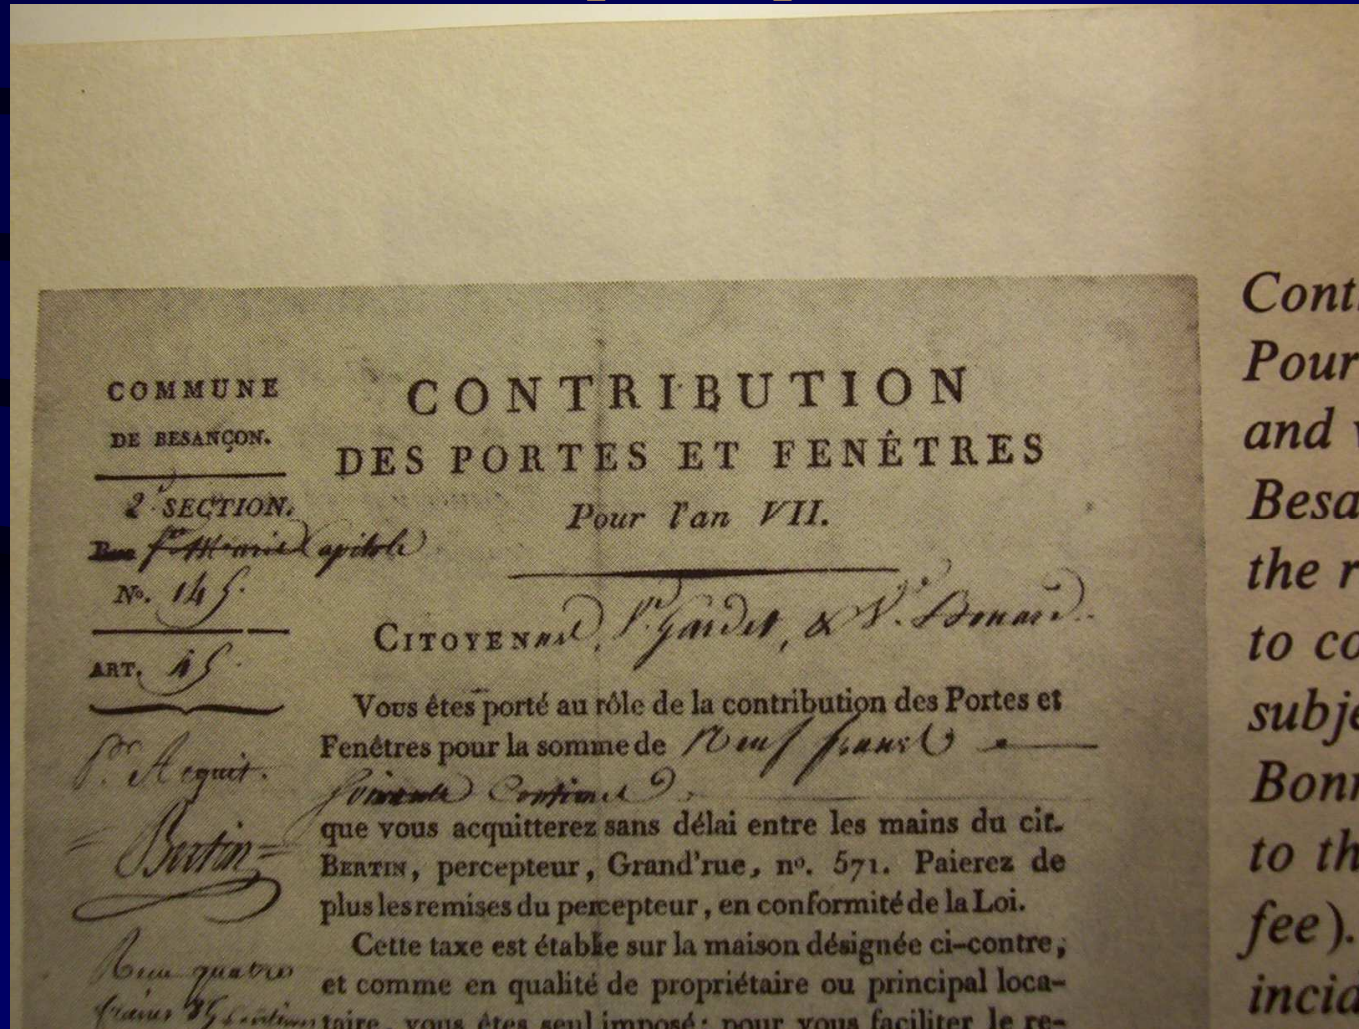 COMMUNE
DE BESANÇON.
2e SECTION.
Rue Capitole
No. 145.
ART. 45
Pr. Acquit.
Bertin
quatre
CONTRIBUTION
DES PORTES ET FENÊTRES
Pour l'an VII.
CITOYEN Gardet, & Ve.
Vous êtes porté au rôle de la contribution des Portes et
Fenêtres pour la somme de Neuf francs
Soixante Centimes
que vous acquitterez sans délai entre les mains du cit.
BERTIN, percepteur, Grand'rue, nº. 571. Paierez de
plus les remises du percepteur, en conformité de la Loi.
Cette taxe est établie sur la maison désignée ci-contre;
et comme en qualité de propriétaire ou principal loca-
taire, vous êtes seul imposé; pour vous faciliter le re-
Cont
Pour
and
Besa
the r
to co
subje
Bonn
to th
fee).
incid